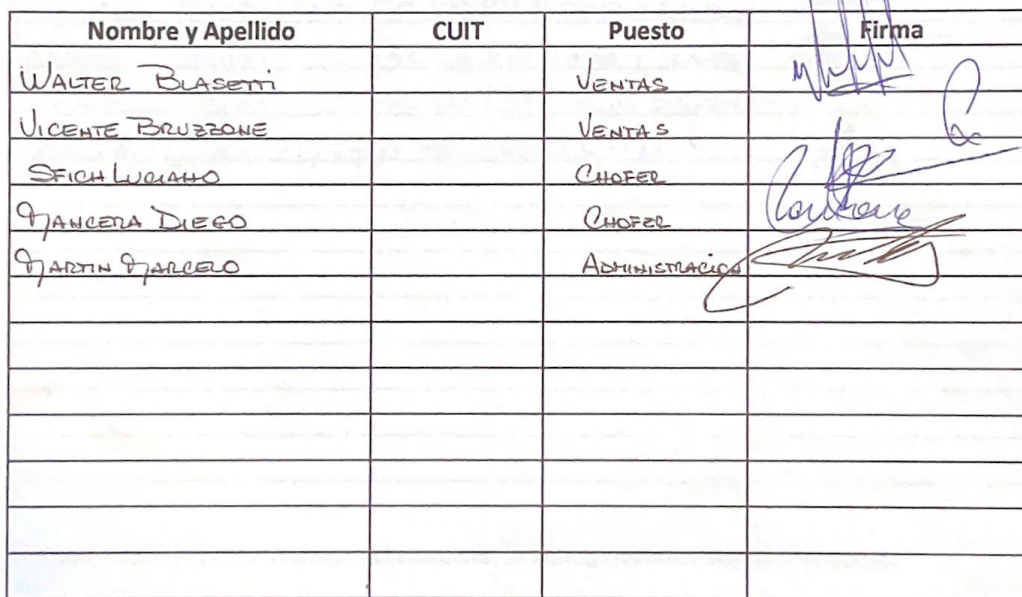 Nombre y Apellido CUIT Puesto Firma
WALTER BLASETTI VENTAS
VICENTE BRUZZONE VENTAS
SFICH LUCIANO CHOFER
MANCERA DIEGO CHOFER
MARTIN MARCELO ADMINISTRACION